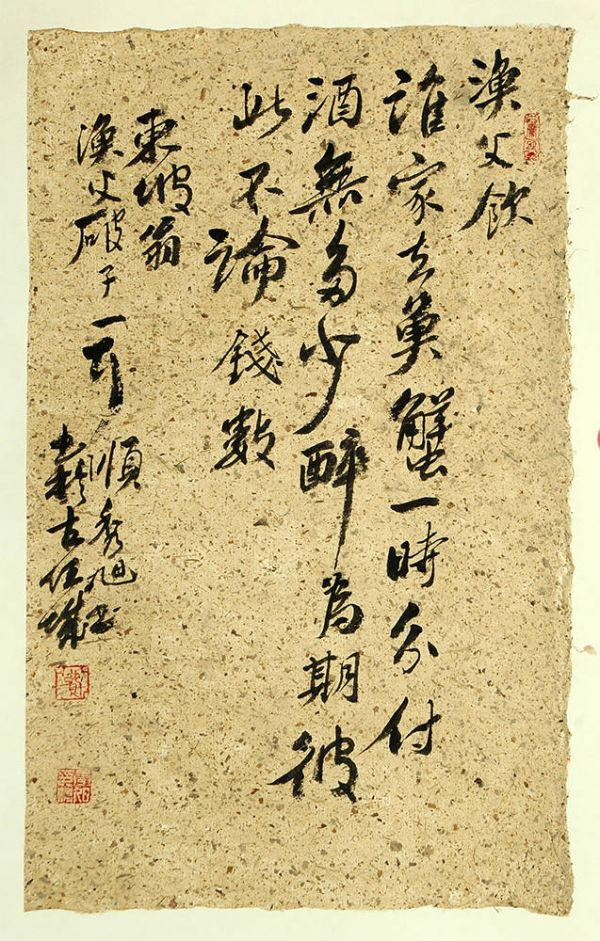 漁父飲
誰家去魚蟹一時分付
酒無多少醉為期彼
此不論錢數
東坡翁
漁父破子一首
古任城